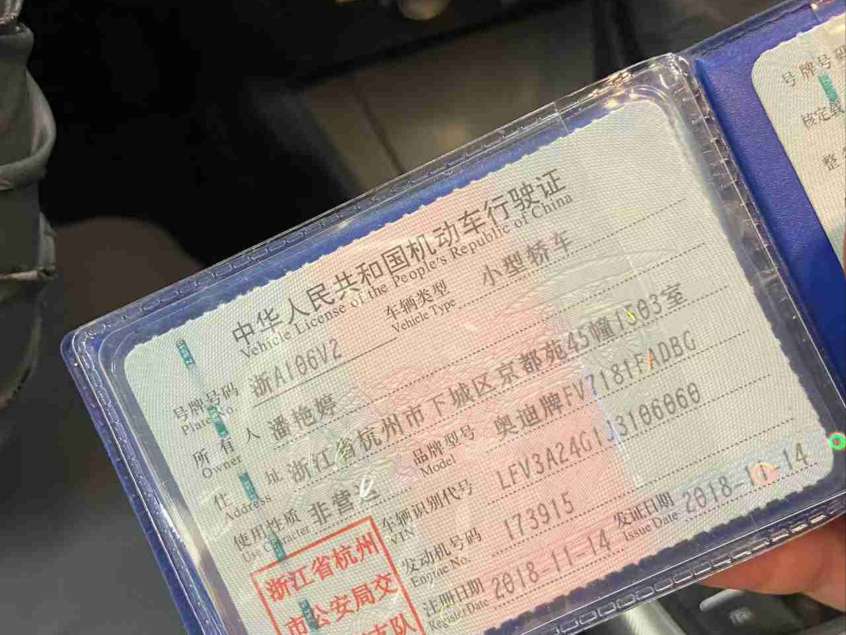 中华人民共和国机动车行驶证
Vehicle License of the People's Republic of China
号牌号码 浙A106V2 车辆类型 小型轿车
Plate No. Vehicle Type
所有人 潘艳婷
Owner
住址 浙江省杭州市下城区京都苑45幢1503室
Address
使用性质 非营运 品牌型号 奥迪牌FV7181FADBG
Use Character Model
车辆识别代号 LFV3A24G1J3106060
VIN
发动机号码 173915
Engine No.
注册日期 2018-11-14 发证日期 2018-11-14
Register Date Issue Date
浙江省杭州
市公安局交
支队
号牌号码
核定载
整